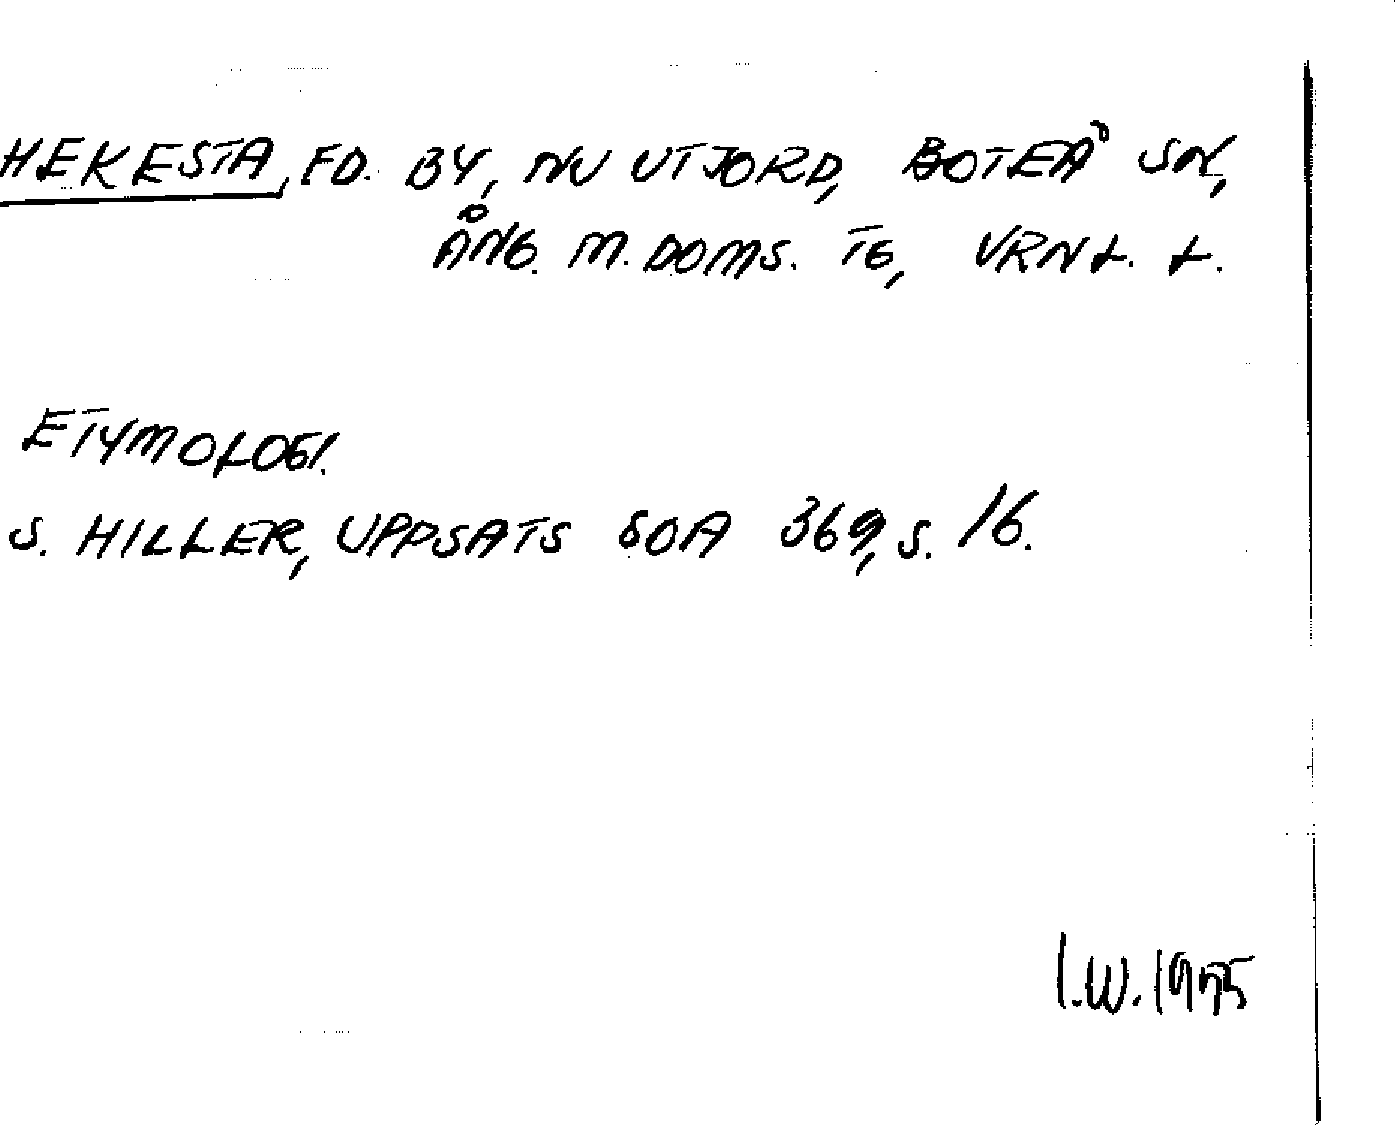 HEKESTA, FD. BY, NU UTJORD, BOTEÅ SN,
ÅNG. M. DOMS. TG, VRNL. L.
ETYMOLOGI.
S. HILLER, UPPSATS SOA 369, S. 16.
I.W. 1975